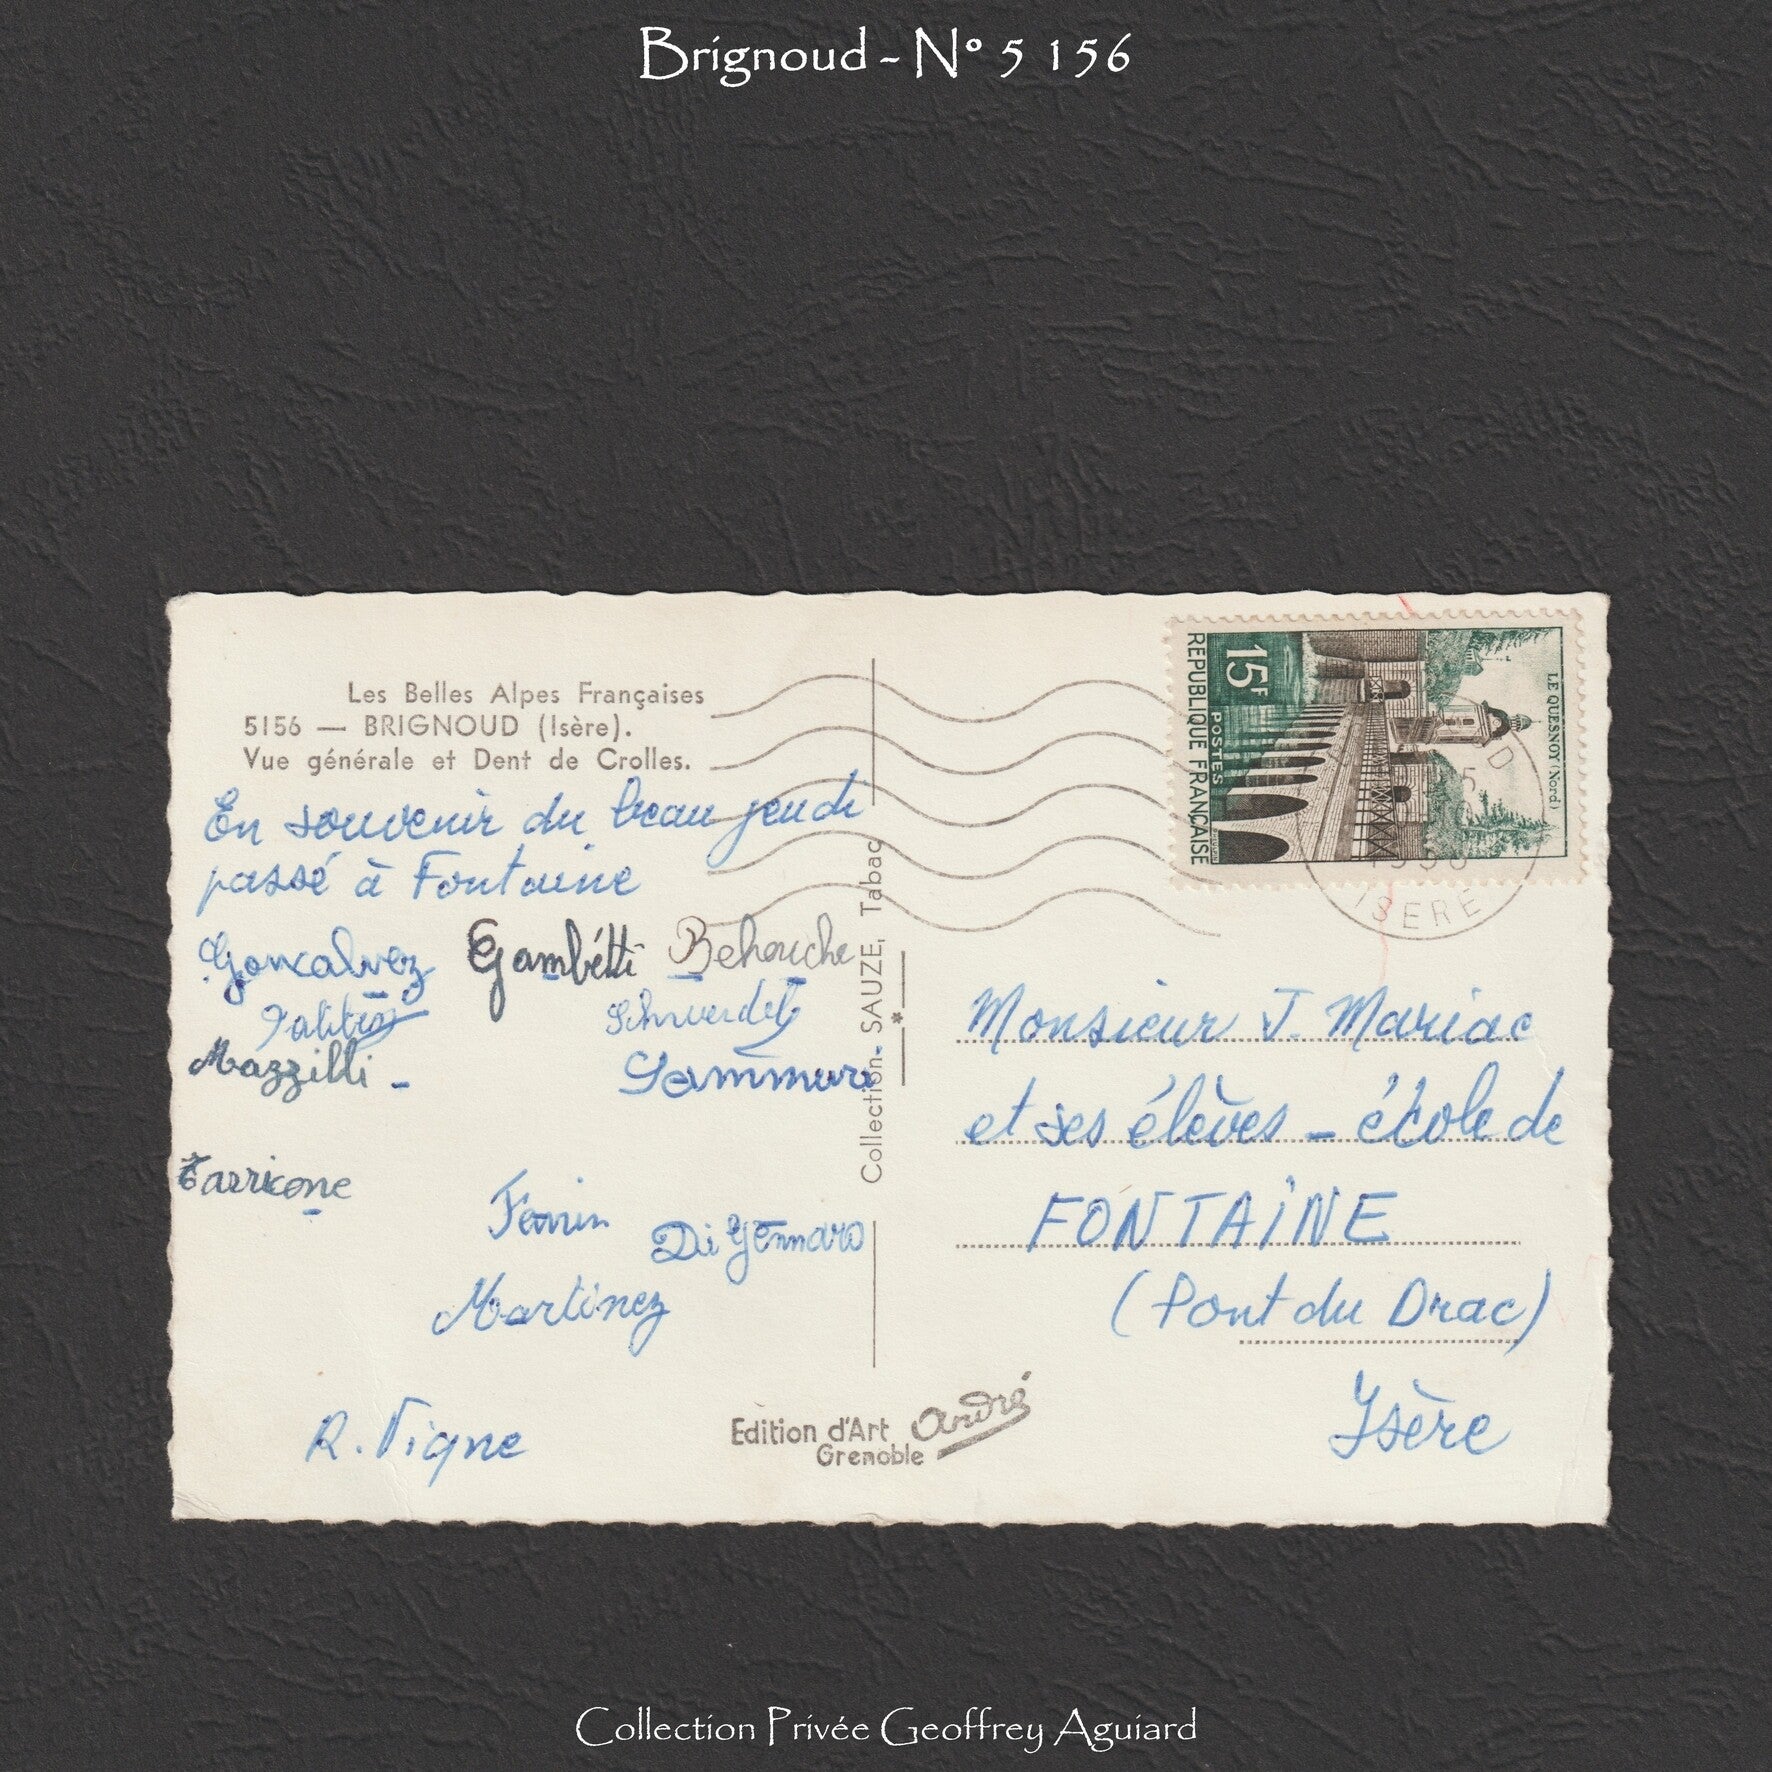 Brignoud - N° 5 156
Les Belles Alpes Françaises
5156 — BRIGNOUD (Isère).
Vue générale et Dent de Crolles.
En souvenir du beau jeudi
passé à Fontaine
Goncalvez Gambétti Behouche
Mazzilli -
Tarricone
Di Gennaro
Martinez
R. Vigne
Collection SAUZE, Tabac
*
Edition d'Art André
Grenoble
15F
POSTES
REPUBLIQUE FRANÇAISE
LE QUESNOY (Nord)
ISERE
Monsieur J. Mariac
et ses élèves - école de
FONTAINE
(Pont du Drac)
Isère
Collection Privée Geoffrey Aguiard